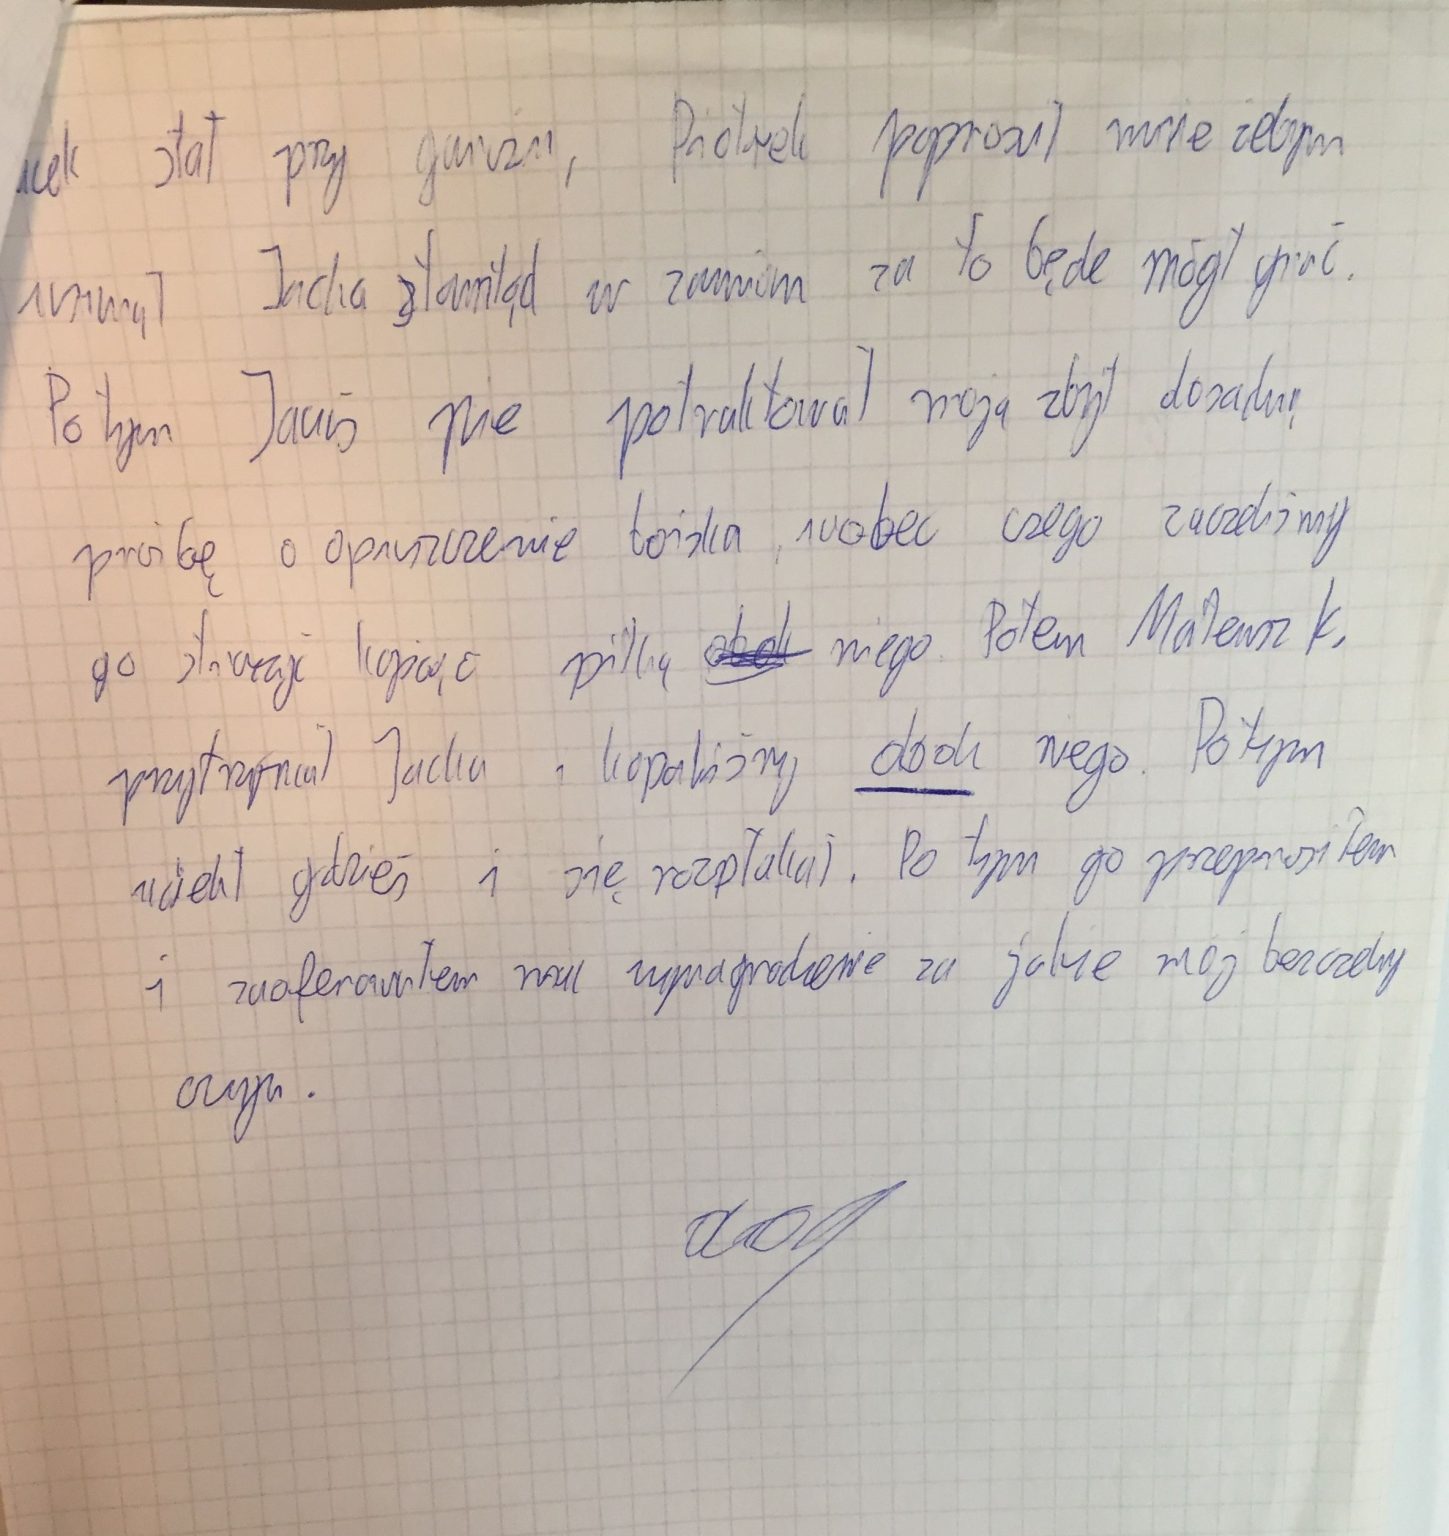 acek stał przy
Piotrek poprosił mnie żebym
usunął Jacka ztamtąd w zamian za to będe mógł grać.
Po tym Jacuś nie potraktował moją zbyt dosadnię
prośbę o opuszczenie boiska, wobec czego zaczeliśmy
go straszyć kopiąc piłką niego. Potem Mateusz K.
przytrzymał Jacka i kopaliśmy obok niego. Po tym
uciekł gdzieś i się rozpłakał. Po tym go przeprosiłem
i zaoferowałem mu wynagrodzenie za jakie mój bezczelny
czyn.